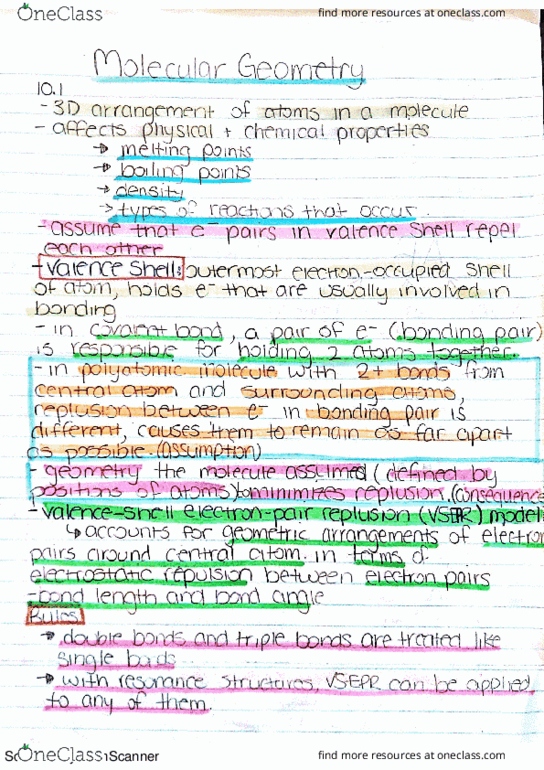 OneClass find more resources at oneclass.com
Molecular Geometry
10.1
- 3D arrangement of atoms in a molecule
- affects physical + chemical properties
→ melting points
→ boiling points
→ density
→ types of reactions that occur
- assume that e⁻ pairs in valence shell repel
each other
- Valence Shell: outermost electron-occupied shell
of atom, holds e⁻ that are usually involved in
bonding
- in covalent bond, a pair of e⁻ (bonding pair)
is responsible for holding 2 atoms together.
- in polyatomic molecule with 2+ bonds from
central atom and surrounding atoms,
replusion between e⁻ in bonding pair is
different, causes them to remain as far apart
as possible. (assumption)
- geometry the molecule assumed (defined by
positions of atoms) to minimizes replusion. (consequence
- valence-shell electron-pair replusion (VSEPR) model
↳ accounts for geometric arrangements of electron
pairs around central atom in terms of
electrostatic repulsion between electron pairs
- bond length and bond angle
Rules
→ double bonds and triple bonds are treated like
single bonds
→ with resonance structures, VSEPR can be applied
to any of them.
OneClass Scanner find more resources at oneclass.com